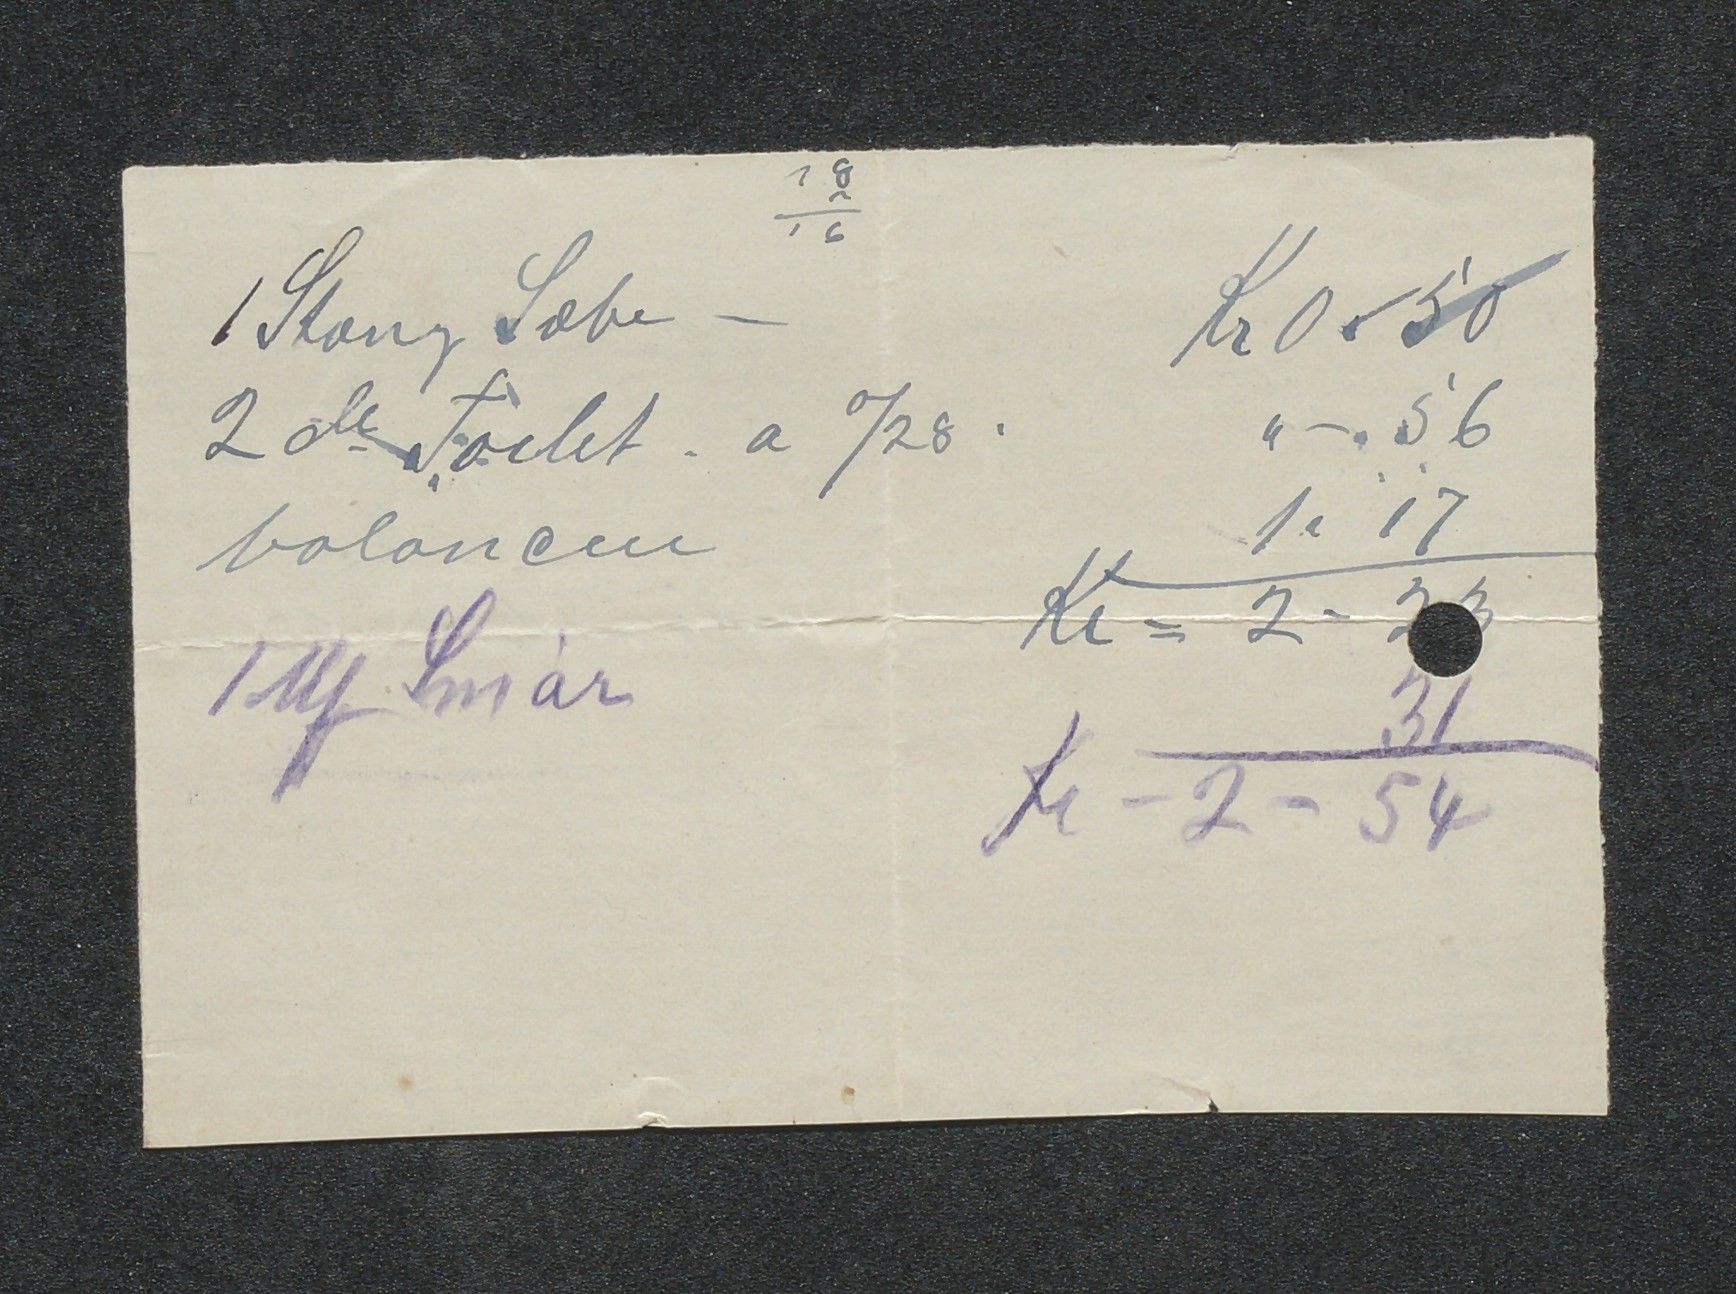 18
2
16
1 Stang Sæbe — Kr 0. 50
2 do Toilet. a 0/28. " — . 56
balancen 1. 17
Kr = 2 - 23
1 Smár 31
Kr - 2 - 54